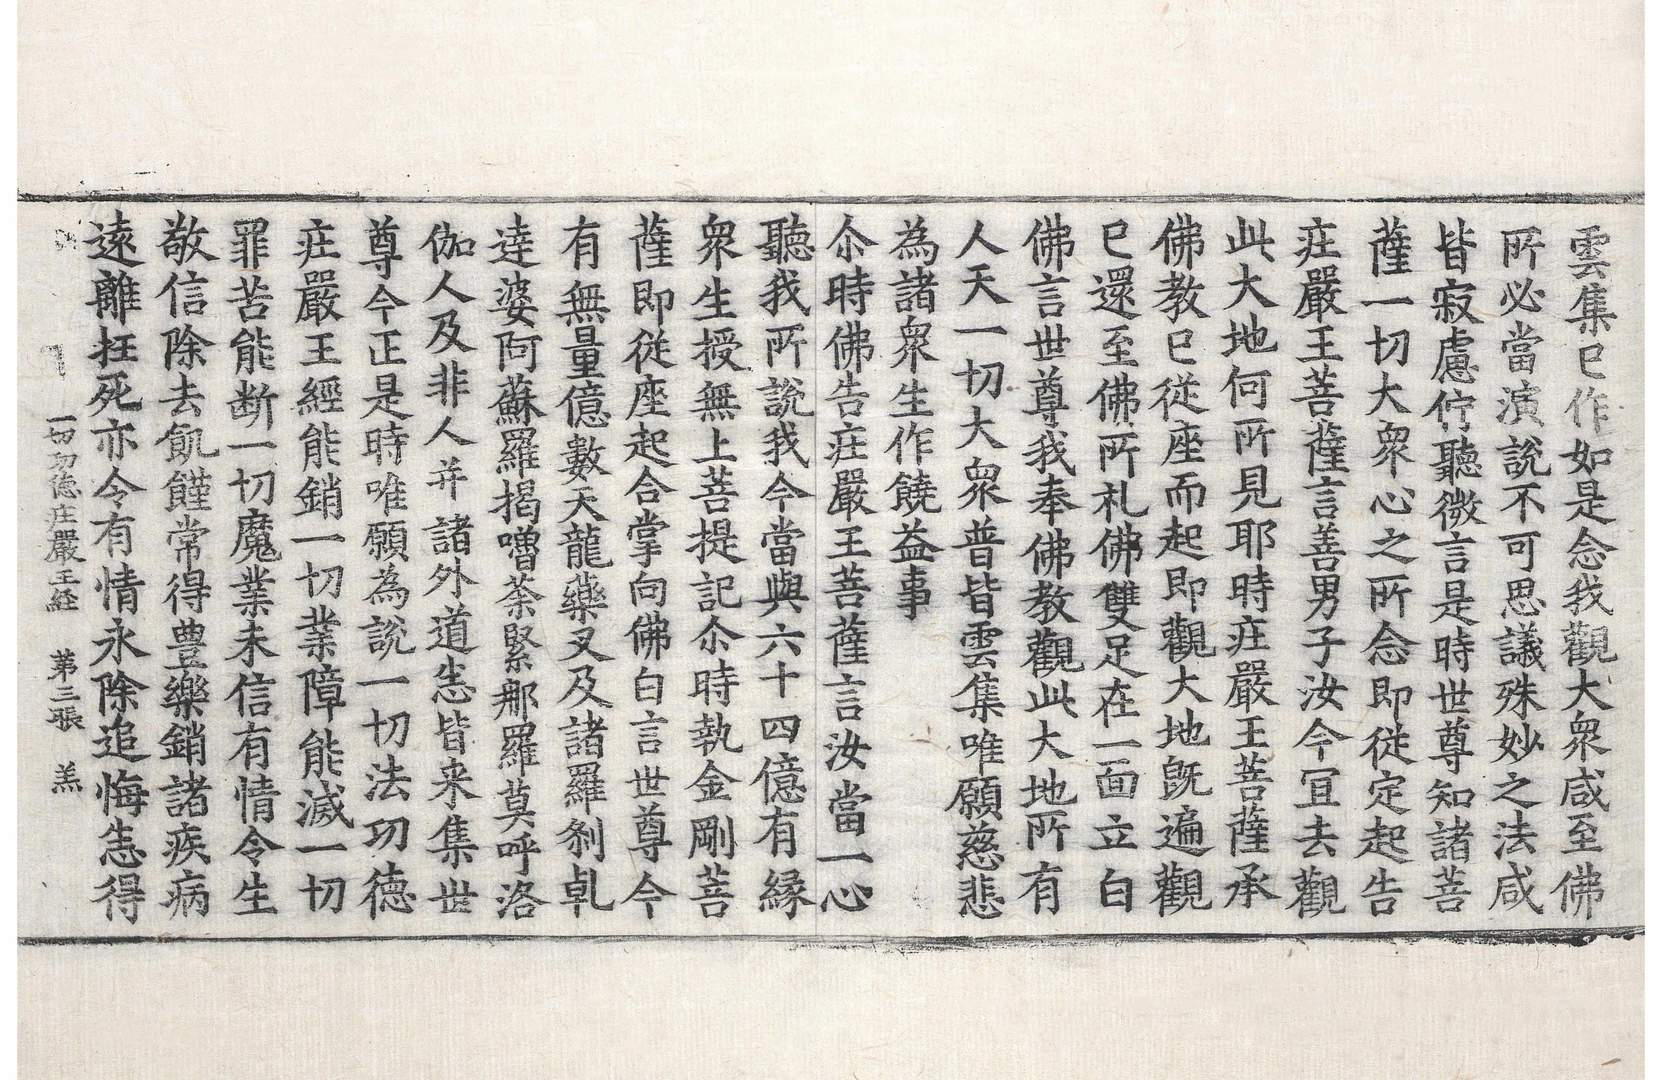 雲集已作如是念我觀大衆咸至佛
所必當演說不可思議殊妙之法咸
皆寂慮佇聽微言是時世尊知諸菩
薩一切大衆心之所念即從定起告
庄嚴王菩薩言善男子汝今冝去觀
此大地何所見耶時庄嚴王菩薩承
佛教已從座而起即觀大地旣遍觀
已還至佛所礼佛雙足在一面立白
佛言世尊我奉佛教觀此大地所有
人天一切大衆普皆雲集唯願慈悲
為諸衆生作饒益事
尒時佛告庄嚴王菩薩言汝當一心
聽我所說我今當與六十四億有緣
衆生授無上菩提記尒時執金剛菩
薩即從座起合掌向佛白言世尊今
有無量億數天龍藥叉及諸羅剎乹
達婆阿蘇羅揭嚕荼緊那羅莫呼洛
伽人及非人并諸外道悉皆来集世
尊今正是時唯願為說一切法功德
庄嚴王經能銷一切業障能滅一切
罪苦能断一切魔業未信有情令生
敬信除去飢饉常得豊樂銷諸疾病
遠離抂死亦令有情永除追悔恙得
一切功德庄嚴王経　第三張　羔